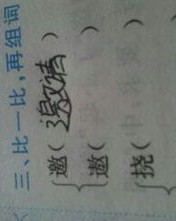 三、比一比,再组词
邀( 邀请 )
遨( )
挠( )